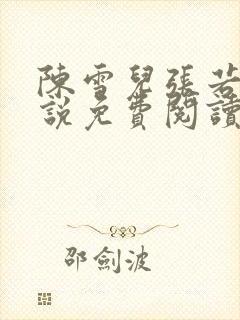 陳雪兒張若
說免費閱讀
邵劍波